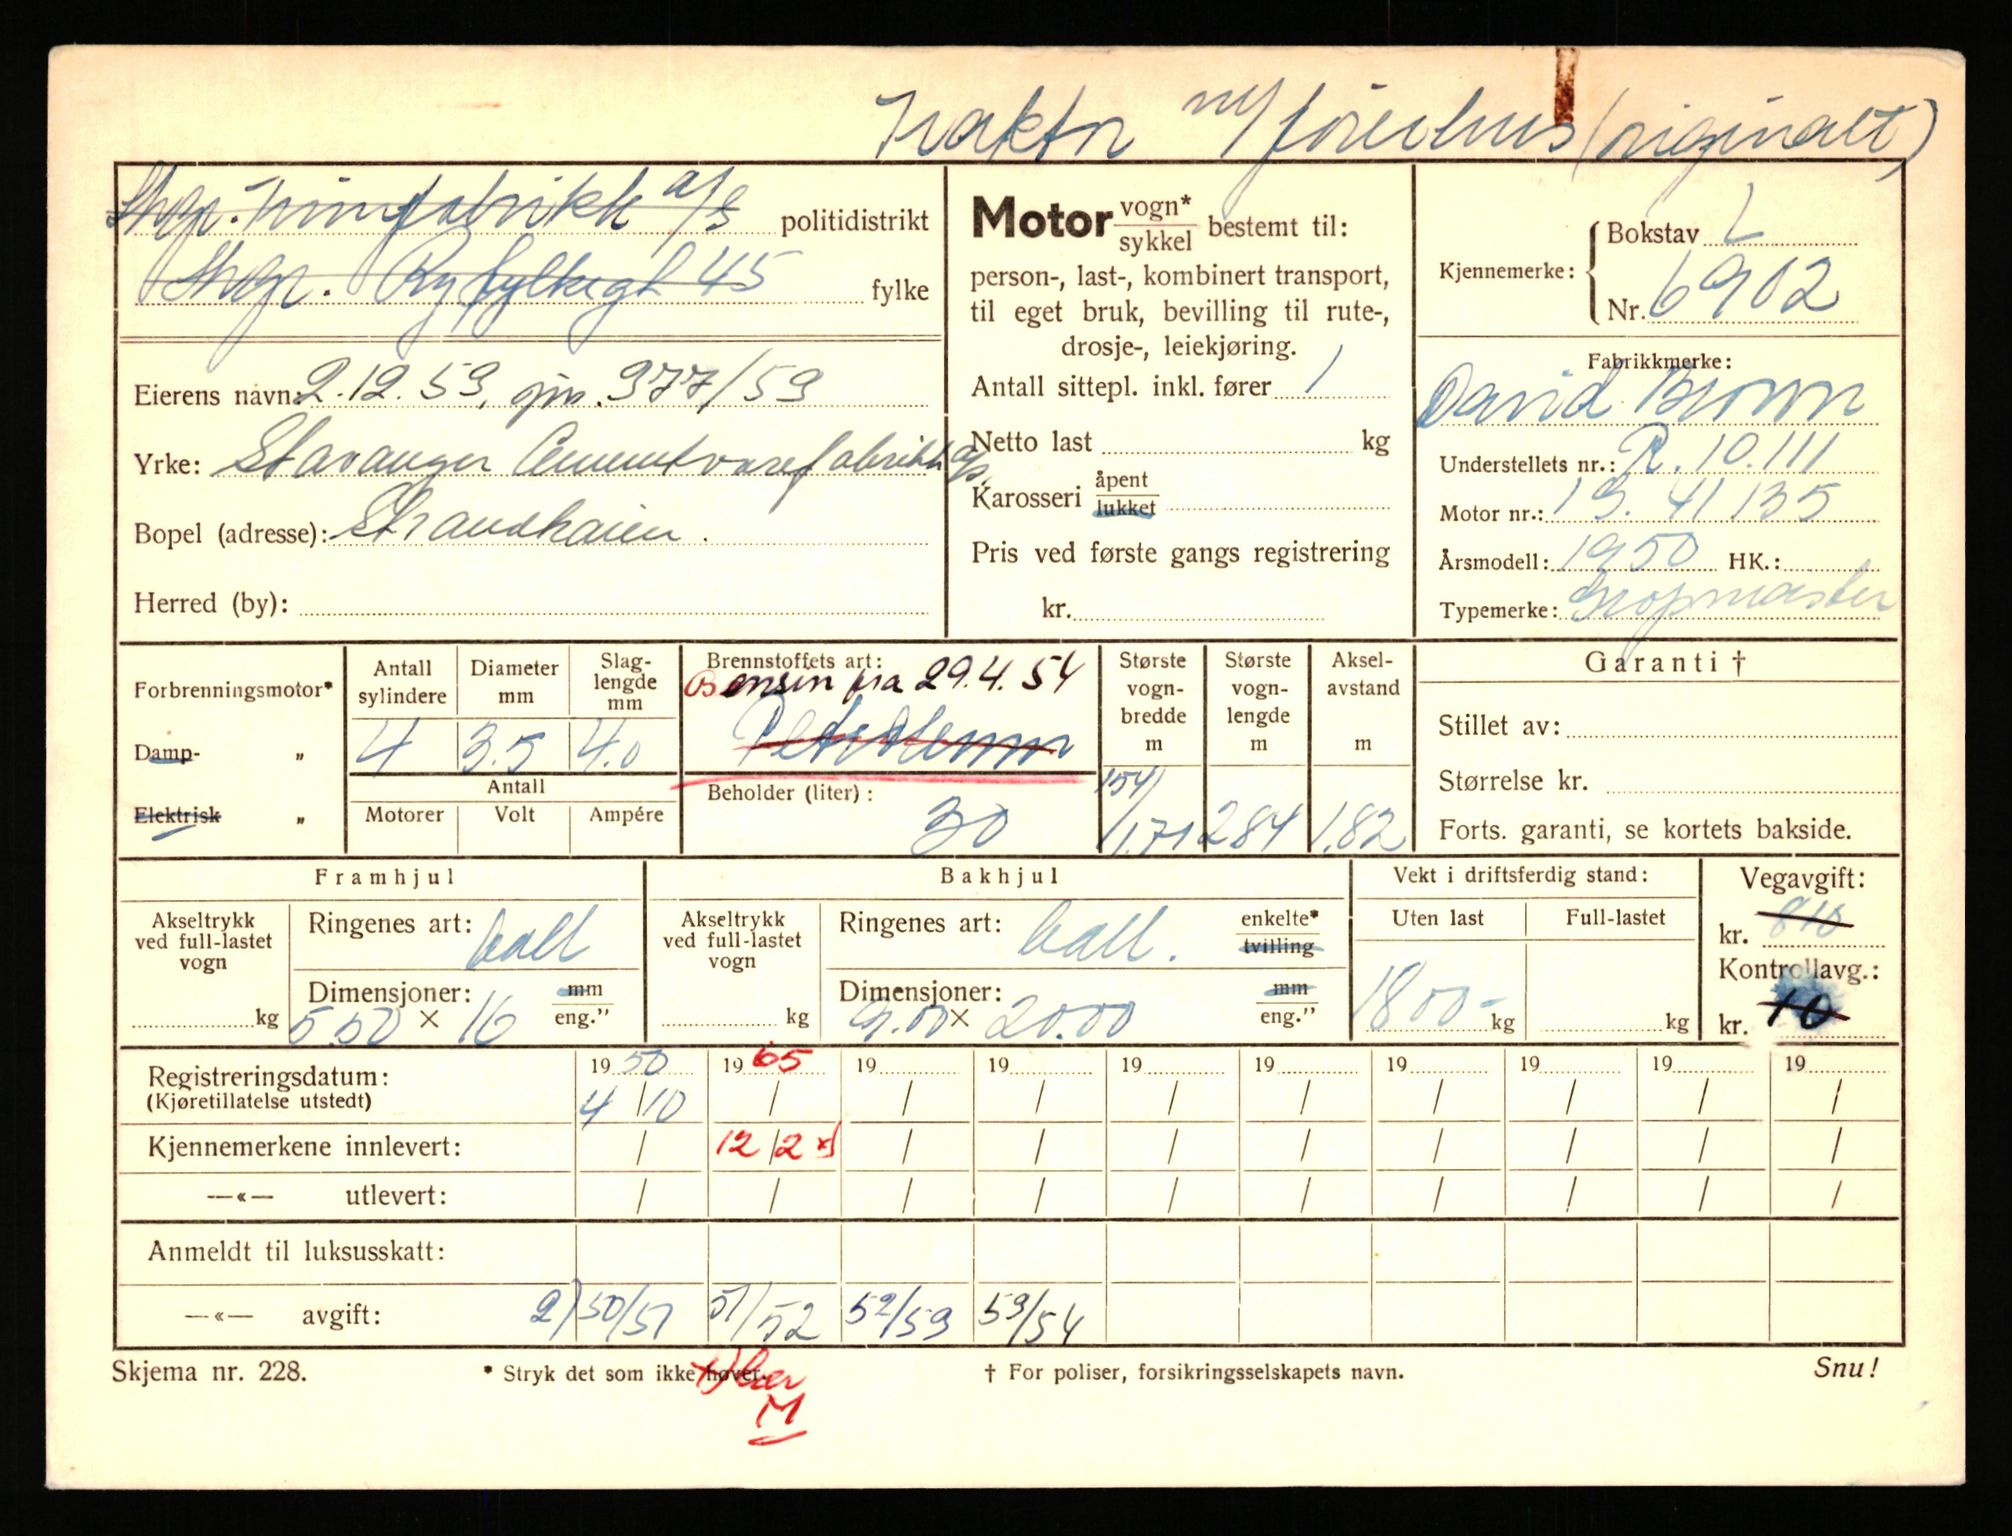 Traktor m/ førerhus (originalt)
Stvgr. Trimfabrikk a/s politidistrikt
Stvgr. Ryfylkegt 45 fylke
Eierens navn: 2.12.53, gjm. 377/53
Yrke: Stavanger Cementvarefabrikk a/s.
Bopel (adresse): Strandkaien.
Herred (by):
Motor vogn* sykkel bestemt til:
person-, last-, kombinert transport,
til eget bruk, bevilling til rute-,
drosje-, leiekjøring.
Antall sittepl. inkl. fører 1
Netto last kg
Karosseri åpent lukket
Pris ved første gangs registrering
kr.
Kjennemerke: Bokstav L
Nr. 6902
Fabrikkmerke:
David Brown
Understellets nr.: R. 10.111
Motor nr.: 13.41135
Årsmodell: 1950 HK.:
Typemerke: Cropmaster
Forbrenningsmotor*
Damp- „
Elektrisk „
Antall sylindere
Diameter mm
Slag-lengde mm
4 3.5 4.0
Antall
Motorer Volt Ampére
Brennstoffets art:
Bensin fra 29.4.54
Beholder (liter):
30
Største vogn-bredde m
154/1.71
Største vogn-lengde m
284
Aksel-avstand m
1.82
Garanti †
Stillet av:
Størrelse kr.
Forts. garanti, se kortets bakside.
Framhjul
Akseltrykk ved full-lastet vogn
kg
Ringenes art: ball
Dimensjoner: mm
5.50 × 16 eng."
Bakhjul
Akseltrykk ved full-lastet vogn
kg
Ringenes art: ball. enkelte* tvilling
Dimensjoner: mm
9.00 × 20.00 eng."
Vekt i driftsferdig stand:
Uten last Full-lastet
1800- kg kg
Vegavgift:
kr. 840
Kontrollavg.:
kr. 10
Registreringsdatum: 19 50 19 65 19 19 19 19 19 19 19 19
(Kjøretillatelse utstedt) 4/10 / / / / / / / / /
Kjennemerkene innlevert: / 12/2 x) / / / / / / / /
—«— utlevert: / / / / / / / / / /
Anmeldt til luksusskatt:
—«— avgift: 2) 50/51 51/52 52/53 53/54
Skjema nr. 228. * Stryk det som ikke høver. † For poliser, forsikringsselskapets navn. Snu!
M